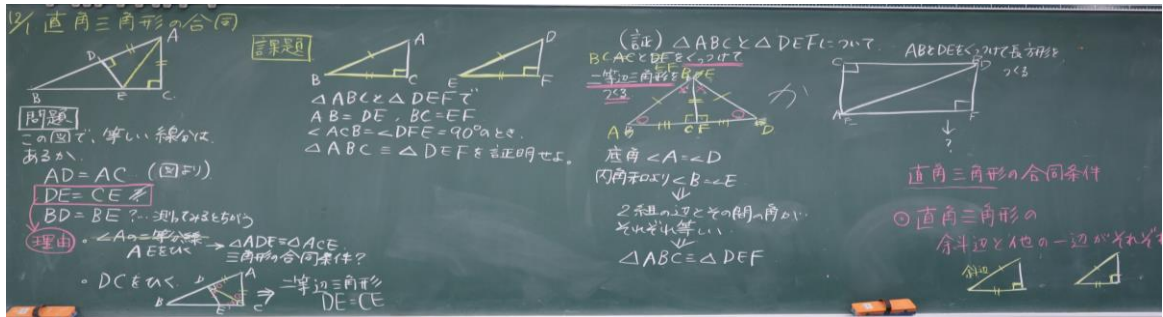 12/1 直角三角形の合同
A
D
B
E
C
問題
この図で、等しい線分は
あるか。
AD=AC (図より)
DE=CE
BD=BE?…測ってみるとちがう
理由
・∠Aの二等分線
AEをひく → △ADE≡△ACE
三角形の合同条件?
・DCをひく
D
A
B
E
C
⇒ 二等辺三角形
DE=CE
課題
A
B
C
D
E
F
△ABCと△DEFで
AB=DE, BC=EF
∠ACB=∠DFE=90°のとき、
△ABC≡△DEFを証明せよ。
(証) △ABCと△DEFについて
をくっつけて
二等辺三角形を
つくる
か
A
B
E
C F
D
底角∠A=∠D
内角和より∠B=∠E
⇓
2組の辺とその間の角が
それぞれ等しい
⇓
△ABC≡△DEF
ABとDEをくっつけて長方形を
つくる
C
A
E
F
↓
?
直角三角形の合同条件
◎直角三角形の
斜辺と他の一辺がそれぞれ
斜辺